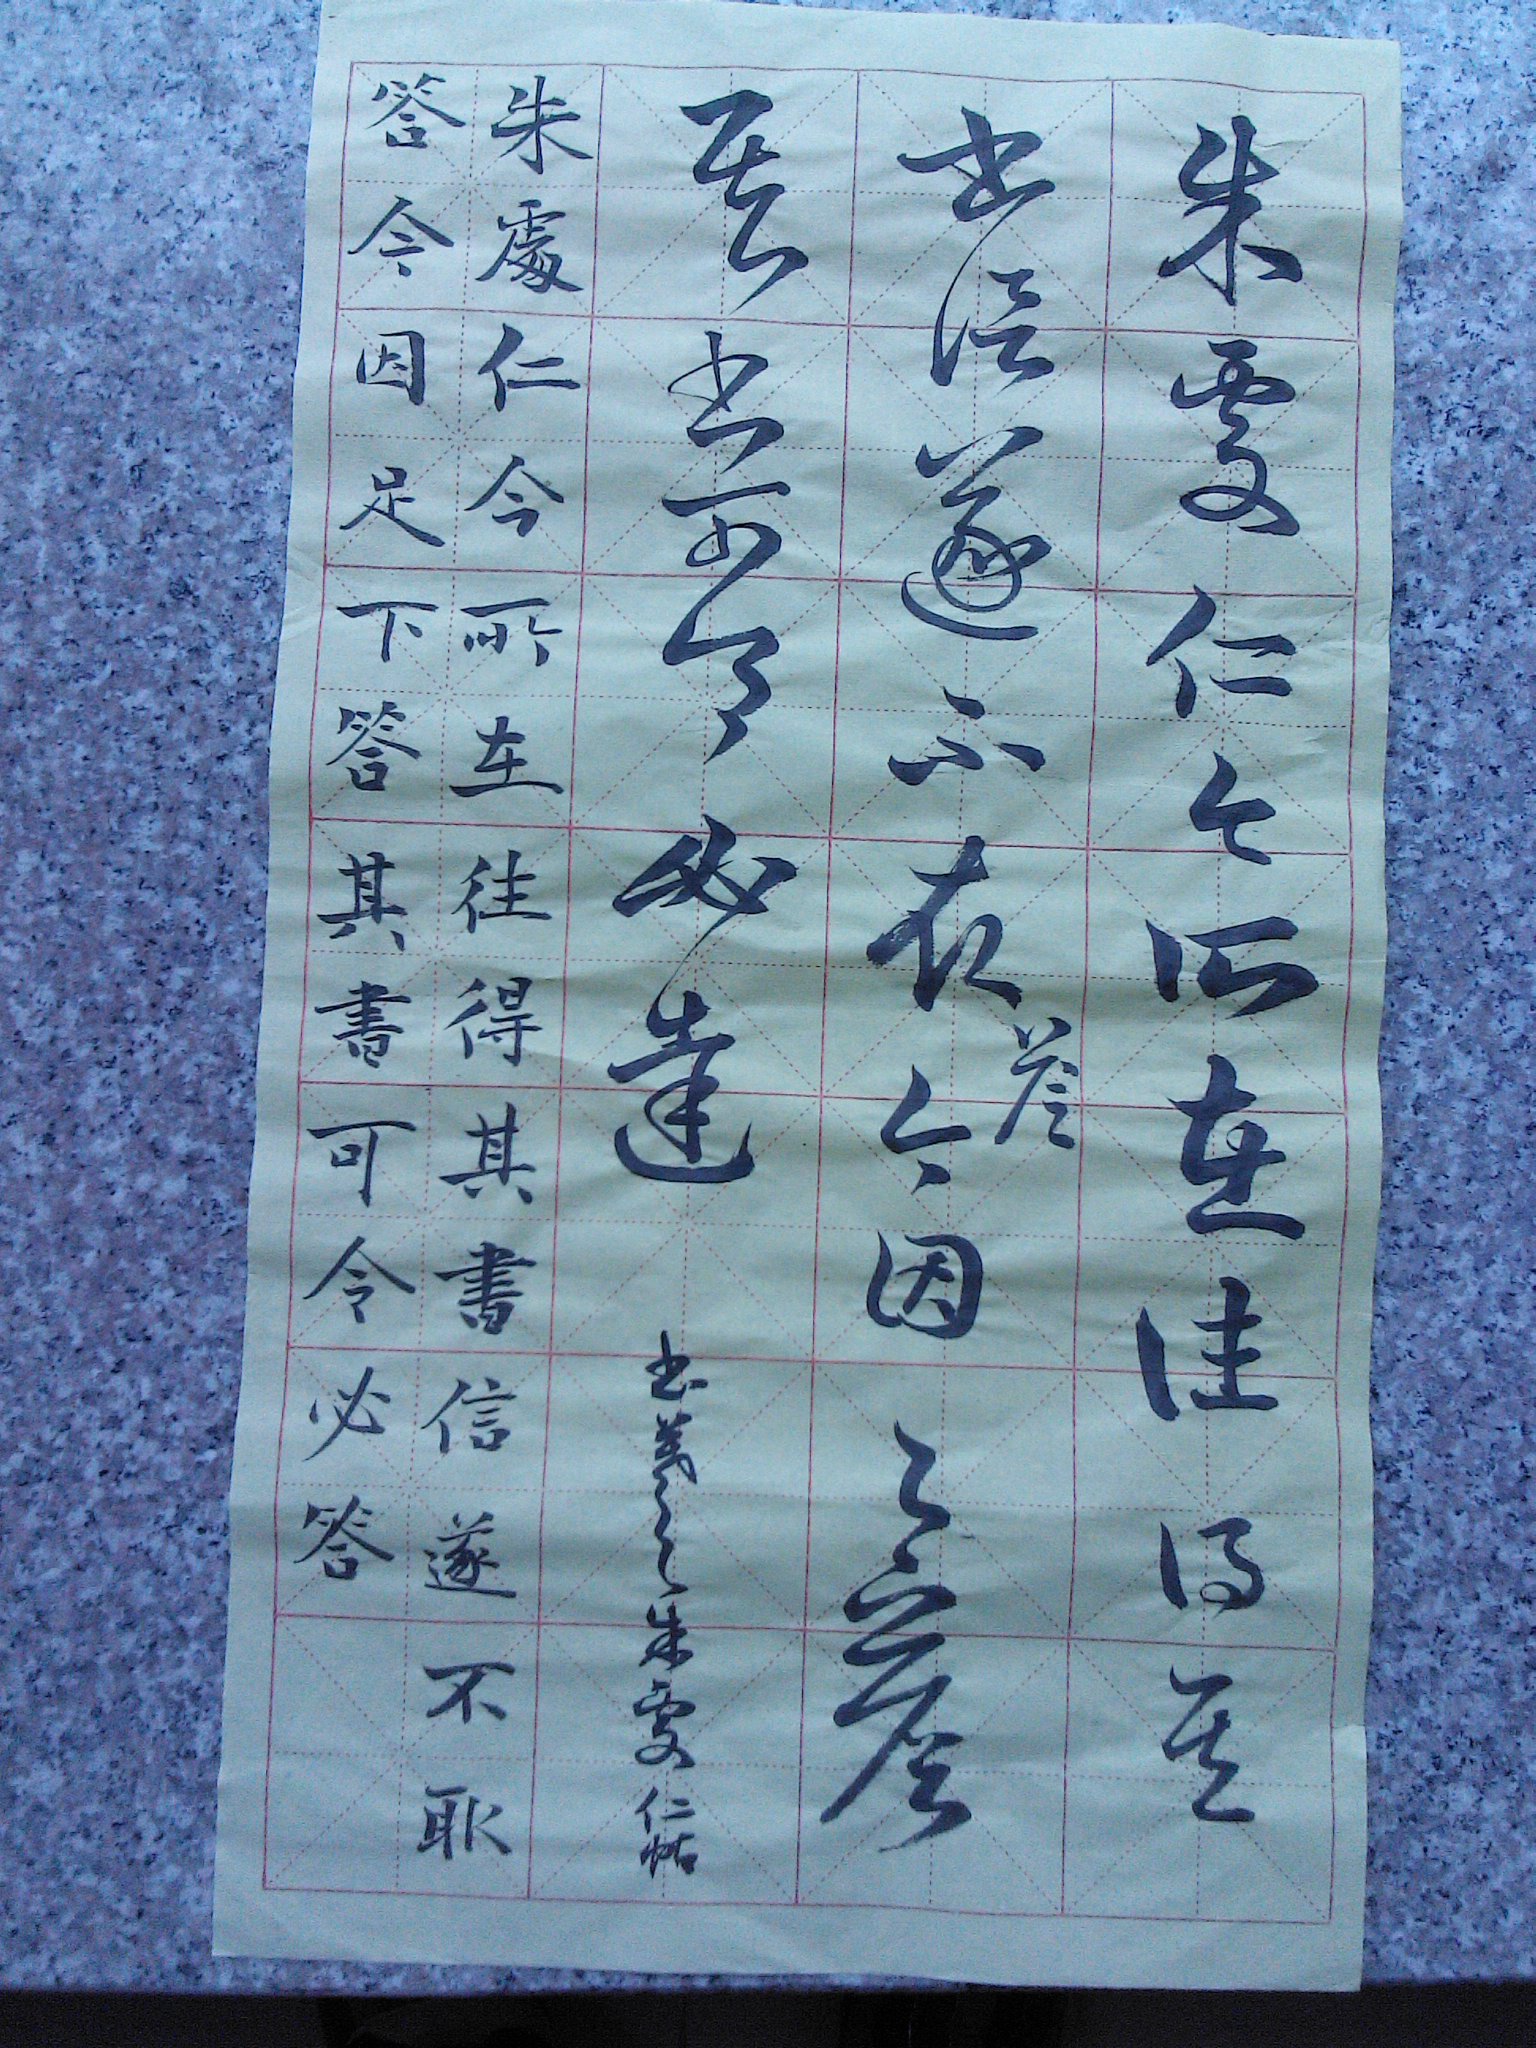 朱處仁今所在往得其
書信遂不取答今因足下答
其書可令必達
書羲之之朱處仁帖
朱處仁今所在往得其書信遂不取
答今因足下答其書可令必答